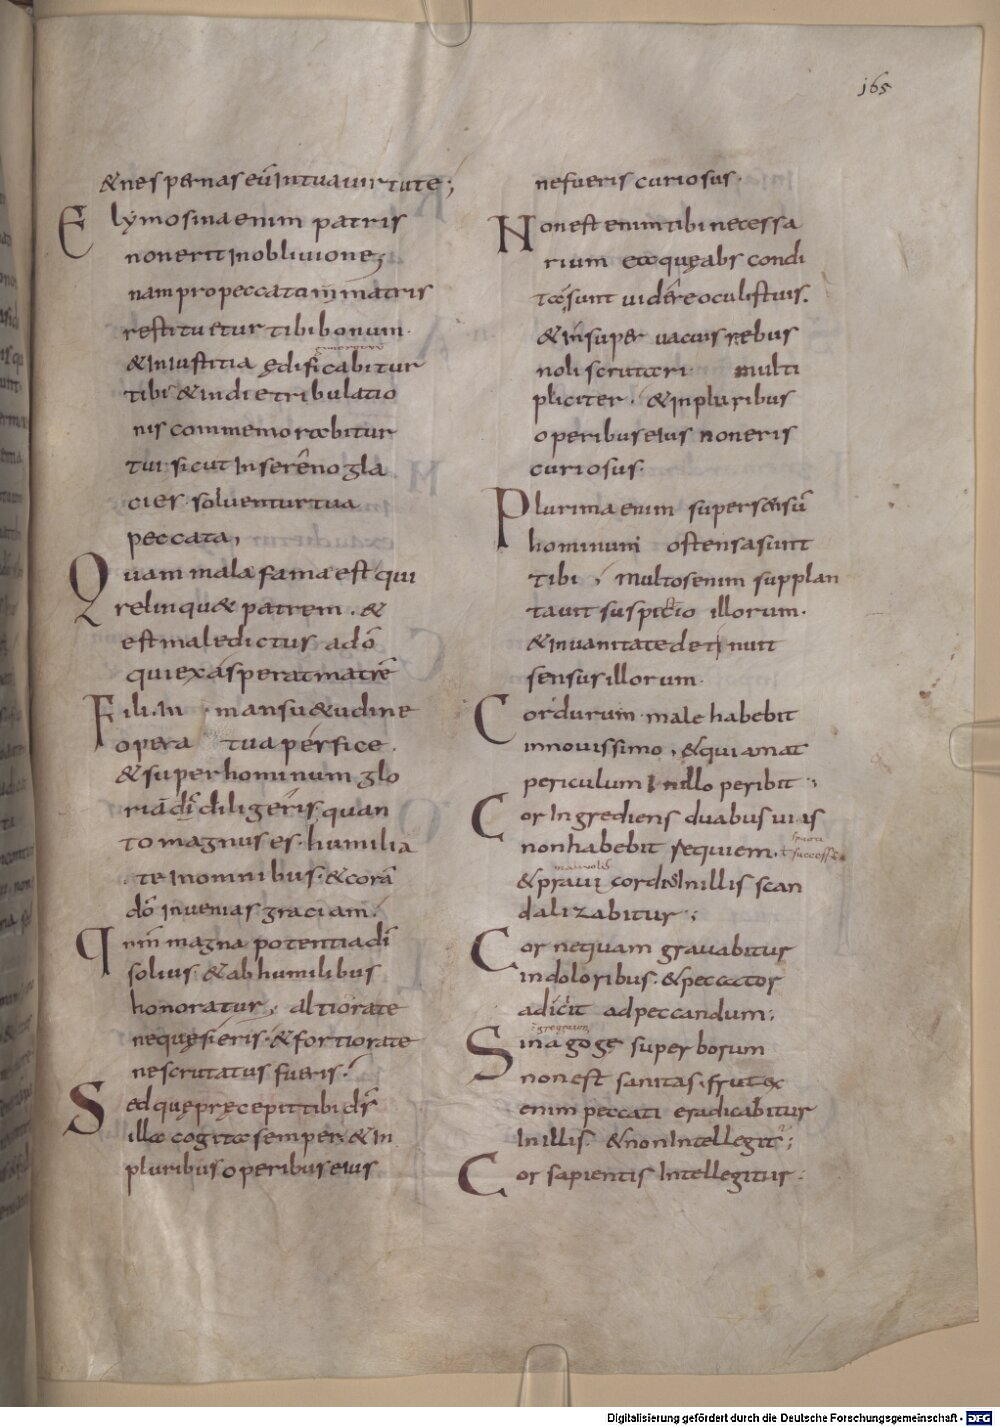 165
& ne spernas eū in tua uirtute;
Elymosina enim patris
non erit in obliuione;
nam pro peccato matris
restituetur tibi bonum.
& in iustitia ędificabitur
tibi & in die tribulatio
nis commemorabitur
tui. sicut in serêno gla
cies soluentur tua
peccata;
Quam mala fama est qui
relinqu& patrem. &
est maledictus a dō
qui exasperat matrē
Fili. In mansu&udine
opera tua perfice.
& super hominum glo
riā di diligeris. quan
to magnus es. humilia
te in omnibus. & corā
dō inuenias graciam.
Qnm magna potentia di
solius. & ab humilibus
honoratur, altiora te
ne quęsieris. & fortiora te
ne scrutatus fueris.
Sed quę pręcepit tibi ds
illa cogita semper. & in
pluribus operibus eius
ne fueris curiosus.
Non est enim tibi necessa
rium ea quę abs condi
ta sunt uidêre oculis tuis.
& in super uacuis rebus
noli scrutari multi
pliciter. & in pluribus
operibus eius non eris
curiosus.
Plurima enim super sensū
hominum ostensa sunt
tibi; multos enim supplan
tauit suspicio illorum.
& in uanitate detinuit
sensus illorum.
Cor durum male habebit
in nouissimo, & qui amat
periculum in illo peribit;
Cor Ingrediens duabus uiis
non habebit requiem. successus
& praui cordis in illis scan
dalizabitur;
Cor nequam grauabitur
in doloribus. & peccator
adicit ad peccandum;
Sinagoge superborum
non est sanitas. frutex
enim peccati eradicabitur
in illis. & non intellegit;
Cor sapientis Intellegitur.
Digitalisierung gefördert durch die Deutsche Forschungsgemeinschaft - DFG